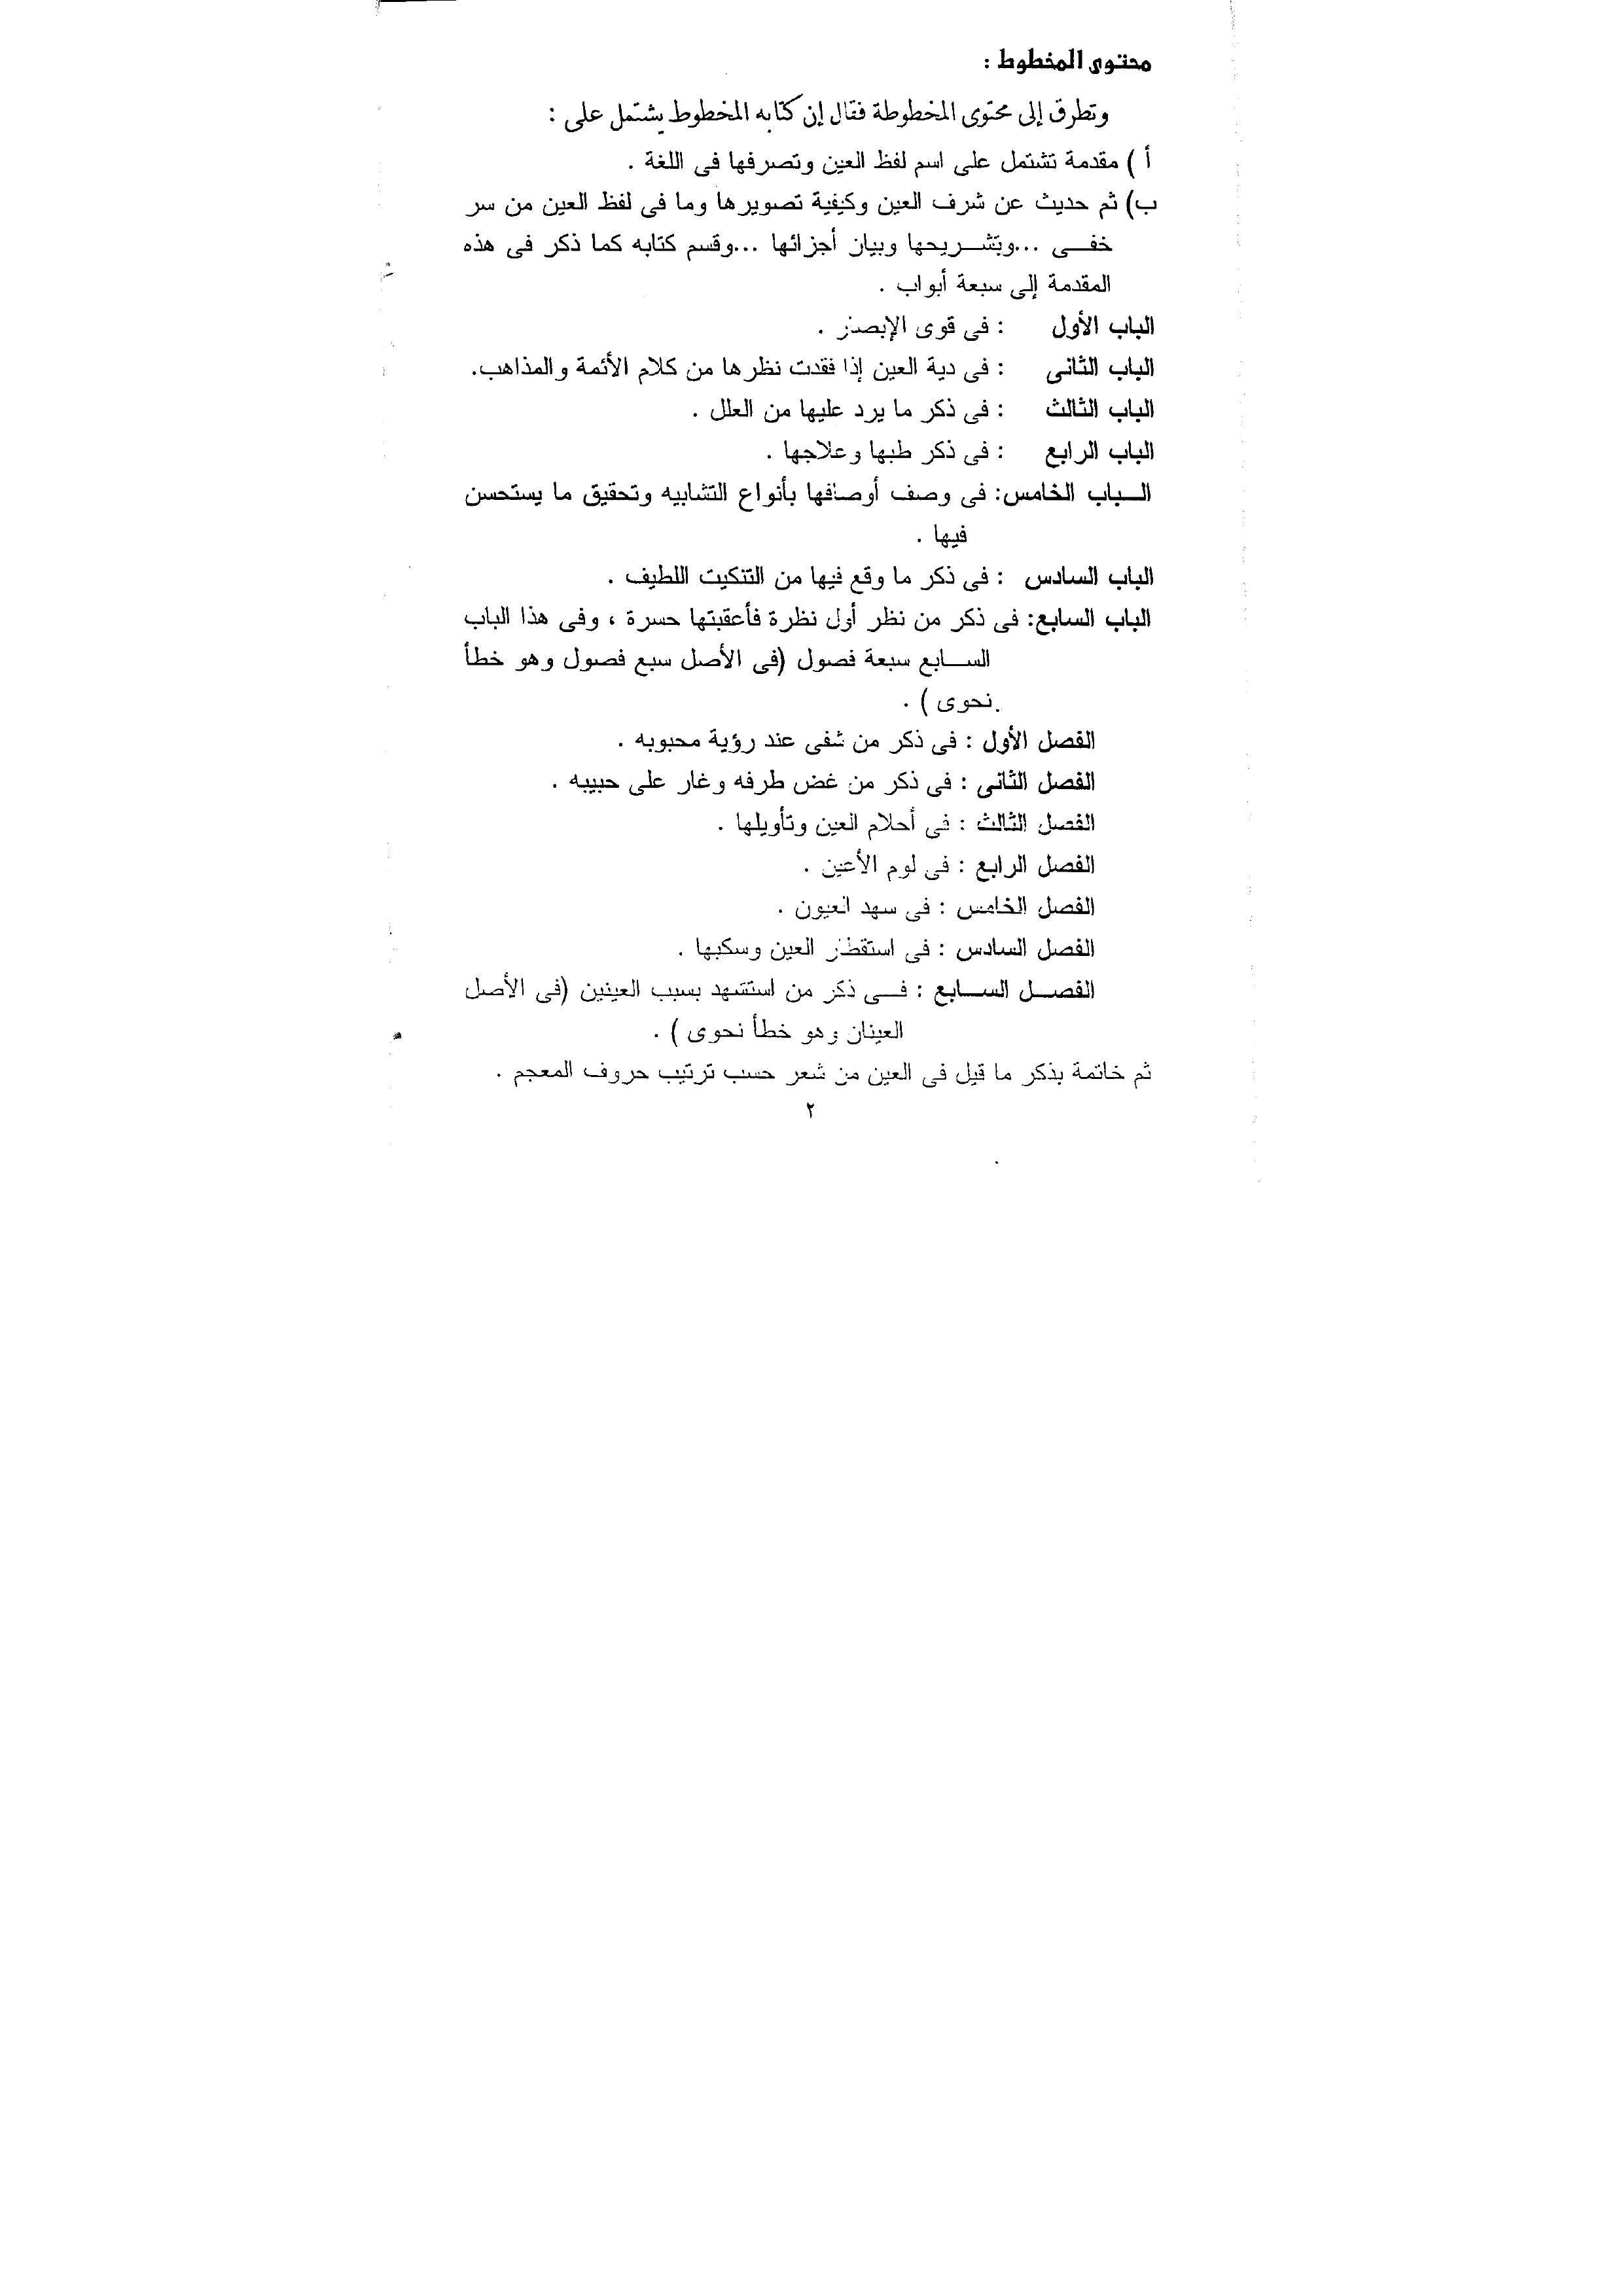 محتوى المخطوط :
وتطرق إلى محتوى المخطوطة فقال إن كتابه المخطوط يشتمل على :
أ ) مقدمة تشتمل على اسم لفظ العين وتصرفها فى اللغة .
ب) ثم حديث عن شرف العين وكيفية تصويرها وما فى لفظ العين من سر
خفـــى ...وتشـــريحها وبيان أجزائها ...وقسم كتابه كما ذكر فى هذه
المقدمة إلى سبعة أبواب .
الباب الأول : فى قوى الإبصار .
الباب الثانى : فى دية العين إذا فقدت نظرها من كلام الأئمة والمذاهب.
الباب الثالث : فى ذكر ما يرد عليها من العلل .
الباب الرابع : فى ذكر طبها وعلاجها .
الـــباب الخامس: فى وصف أوصافها بأنواع التشابيه وتحقيق ما يستحسن
فيها .
الباب السادس : فى ذكر ما وقع فيها من التنكيت اللطيف .
الباب السابع: فى ذكر من نظر أول نظرة فأعقبتها حسرة ، وفى هذا الباب
الســـابع سبعة فصول (فى الأصل سبع فصول وهو خطأ
نحوى ) .
الفصل الأول : فى ذكر من شفى عند رؤية محبوبه .
الفصل الثانى : فى ذكر من غض طرفه وغار على حبيبه .
الفصل الثالث : فى أحلام العين وتأويلها .
الفصل الرابع : فى لوم الأعين .
الفصل الخامس : فى سهد العيون .
الفصل السادس : فى استقطار العين وسكبها .
الفصـــل الســـابع : فـــى ذكر من استشهد بسبب العينين (فى الأصل
العينان وهو خطأ نحوى ) .
ثم خاتمة بذكر ما قيل فى العين من شعر حسب ترتيب حروف المعجم .
٢